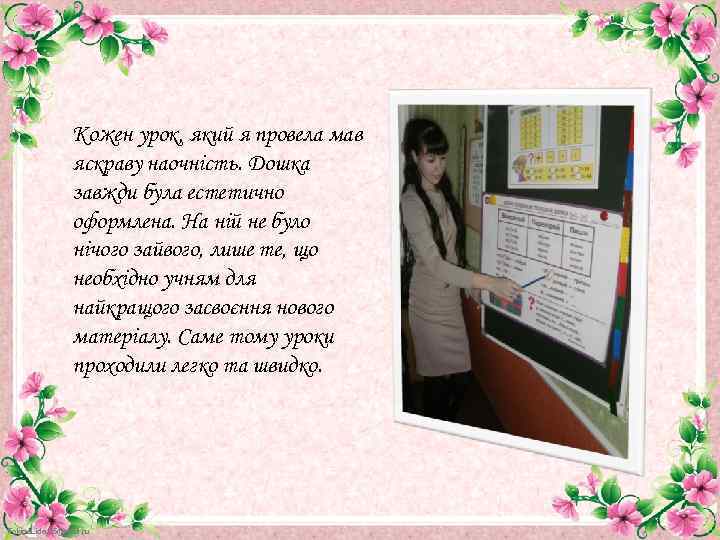 Кожен урок, який я провела мав
яскраву наочність. Дошка
завжди була естетично
оформлена. На ній не було
нічого зайвого, лише те, що
необхідно учням для
найкращого засвоєння нового
матеріалу. Саме тому уроки
проходили легко та швидко.